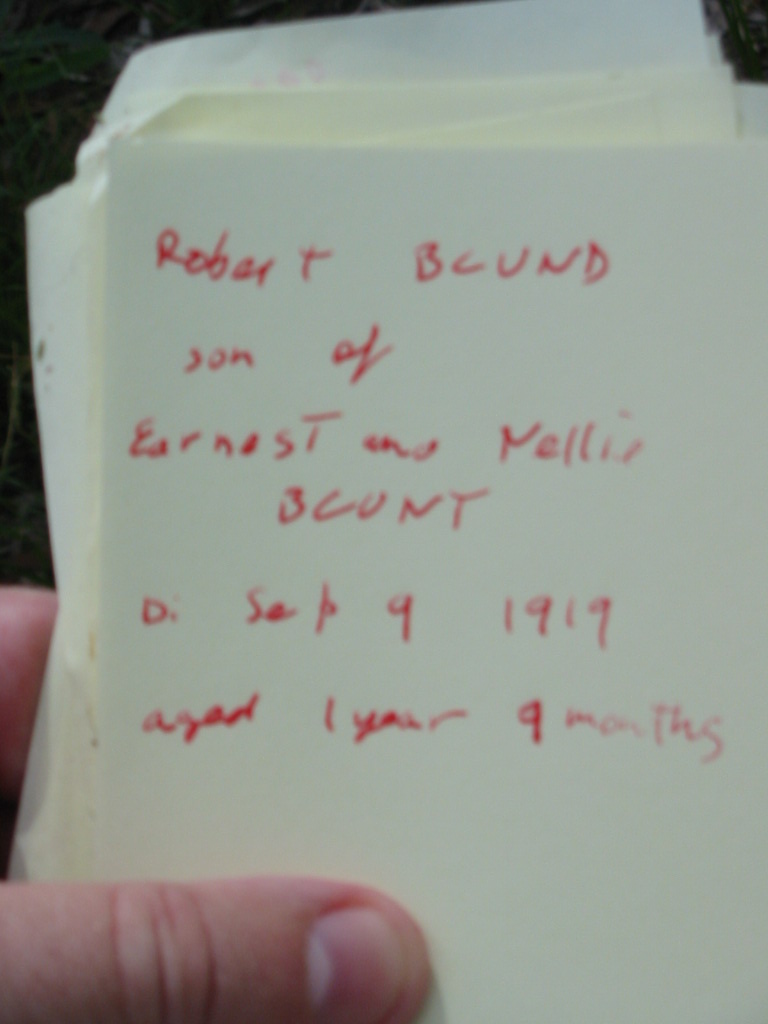 Robert BLUND
son of
Earnest and Nellie
BLUNT
D: Sep 9 1919
aged 1 year 9 months